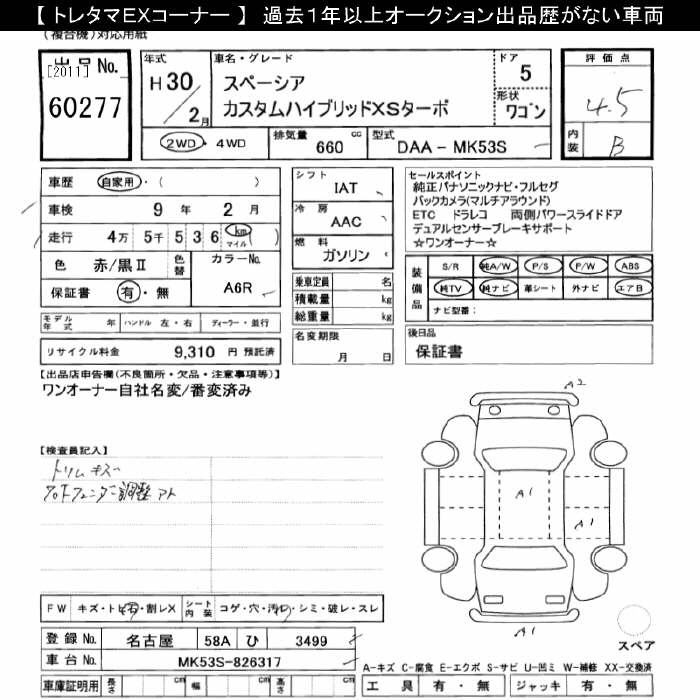 【 トレタマEXコーナー 】 過去１年以上オークション出品歴がない車両
（複合機）対応用紙
出品No.
[2011]
60277
年式
H 30 / 2月
車名・グレード
スペーシア
カスタムハイブリッドXSターボ
ドア
5
形状
ワゴン
2WD・4WD
排気量
660 cc
型式
DAA－MK53S
評価点
4.5
内装
B
車歴 自家用・（ ）
車検 9 年 2 月
走行 4万 5千 5 3 6 km マイル ( )
色 赤/黒Ⅱ 色替 カラーNo.
A6R
保証書 有・無
モデル年式 年 ハンドル 左・右 ディーラー・並行
リサイクル料金 9,310 円 預託済
シフト
IAT
冷房
AAC
燃料
ガソリン
乗車定員 名
積載量 kg
総重量 kg
名変期限
月 日
セールスポイント
純正パナソニックナビ・フルセグ
バックカメラ(マルチアラウンド)
ETC ドラレコ 両側パワースライドドア
デュアルセンサーブレーキサポート
☆ワンオーナー☆
装備品
S/R 純A/W P/S P/W ABS
純TV 純ナビ 革シート 外ナビ エアB
ナビ型番：
後日品
保証書
【出品店申告欄(不良箇所・欠品・注意事項等)】
ワンオーナー自社名変/番変済み
【検査員記入】
トリムキズ
フロトフェンダー調整アト
A2
A1
A1
A1
スペア
FW キズ・トビ石・割レX シート内装 コゲ・穴・汚レ・シミ・破レ・スレ
登録No. 名古屋 58A ひ 3499
車台No. MK53S-826317
車庫証明用 長さ cm 幅 cm 高さ cm
A-キズ C-腐食 E-エクボ S-サビ U-凹ミ W-補修 XX-交換済
工具 有・無 ジャッキ 有・無